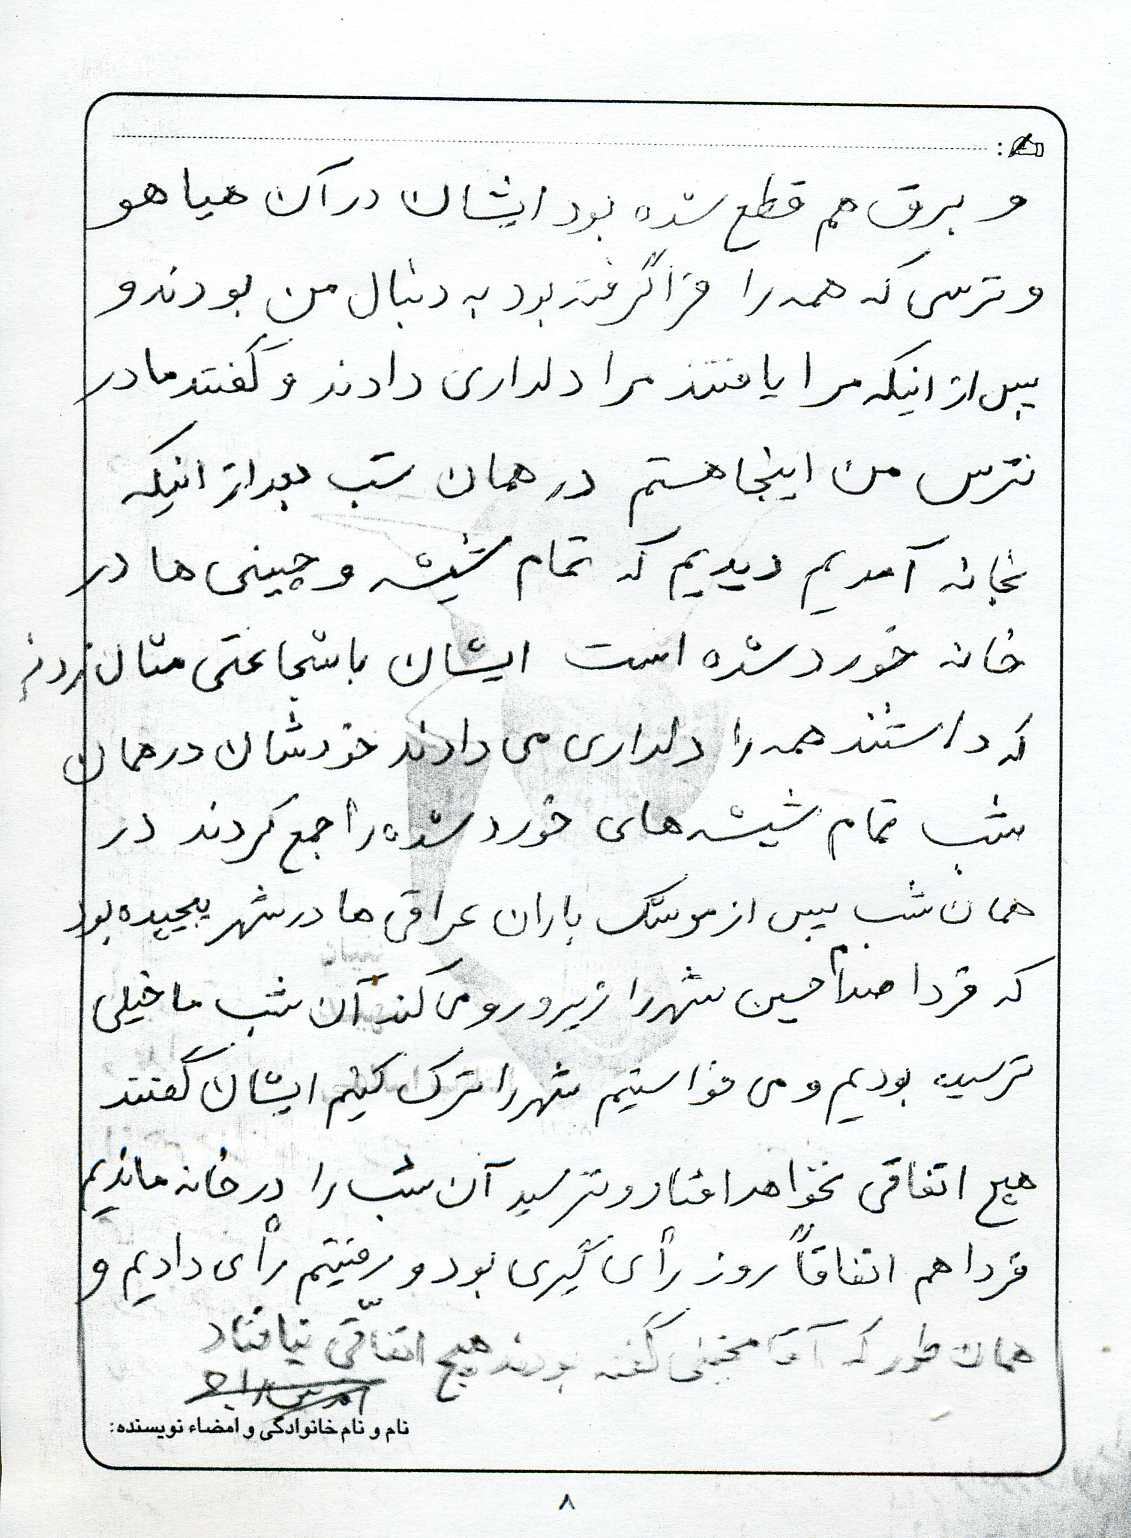 و برق هم قطع شده بود ایشان در آن هیاهو
و ترسی که همه را فراگرفته بود به دنبال من بودند و
پس از اینکه مرا یافتند مرا دلداری دادند و گفتند مادر
نترس من اینجا هستم در همان شب بعد از اینکه
بخانه آمدیم دیدیم که تمام شیشه و چینی ها در
خانه خورد شده است ایشان با شجاعتی مثال زدنی
که داشتند همه را دلداری می دادند خودشان در همان
شب تمام شیشه های خورد شده را جمع کردند در
همان شب پس از موشک باران عراقی ها در شهر پیچیده بود
که فردا صدام حسین شهر را زیر و رو می کند آن شب ما خیلی
ترسیده بودیم و می خواستیم شهر را ترک کنیم ایشان گفتند
هیچ اتفاقی نخواهد افتاد و نترسید آن شب را در خانه ماندیم
فردا هم اتفاقاً روز رأی گیری بود و رفتیم رأی دادیم و
همان طور که آقا مجتبی گفته بودند هیچ اتفاقی نیافتاد
نام و نام خانوادگی و امضاء نویسنده:
۸